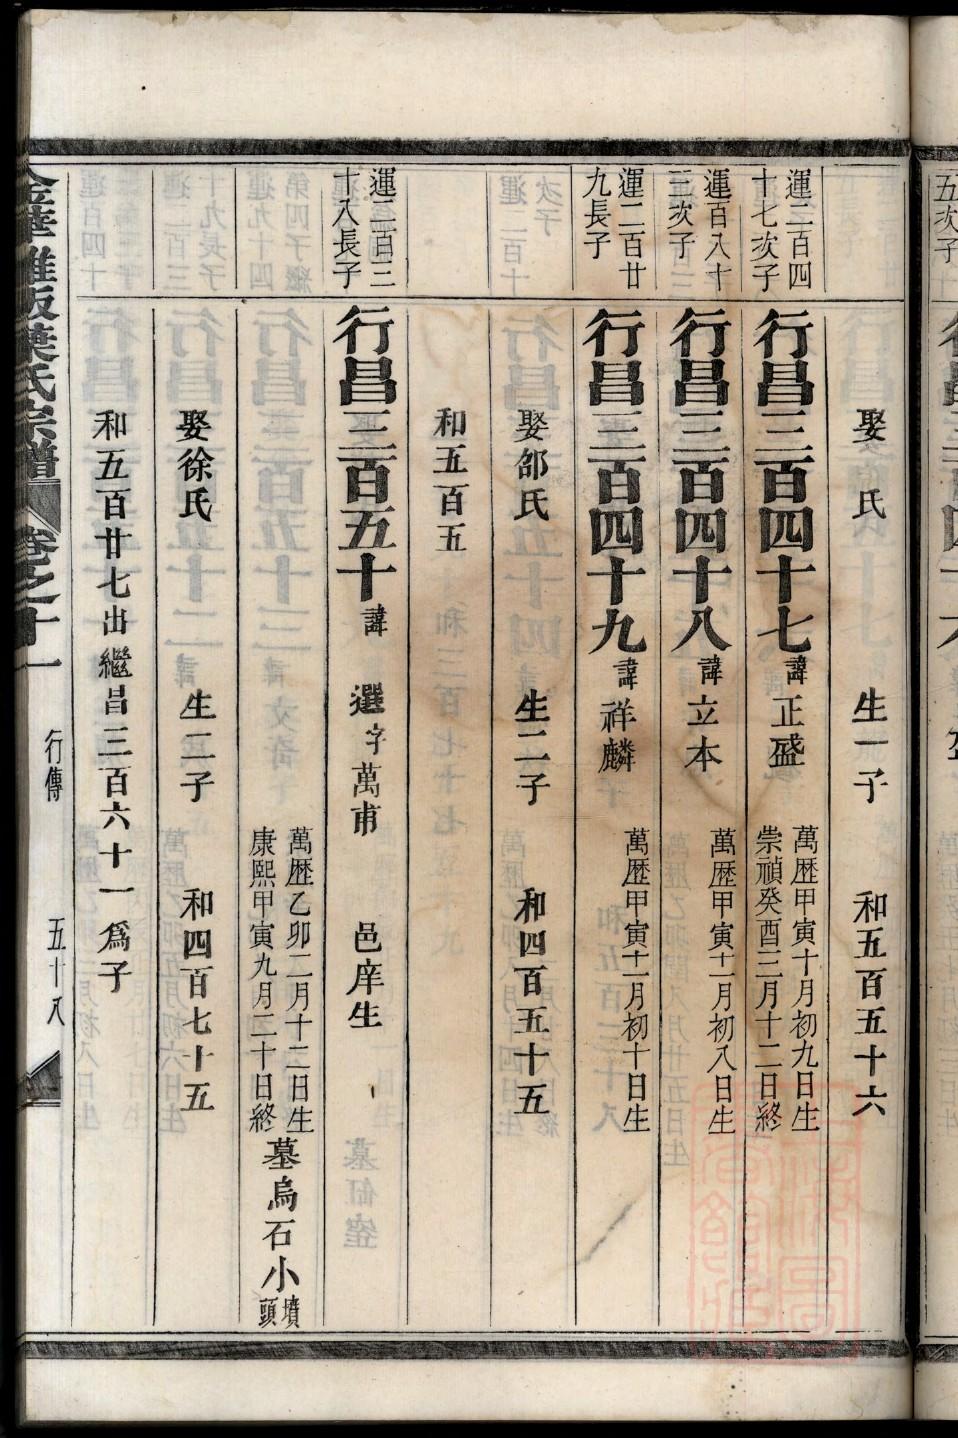 娶　氏　生一子　和五百五十六
運二百四十七次子
行昌三百四十七 諱正盛 萬歷甲寅十月初九日生 崇禎癸酉三月十二日終
運百八十三次子
行昌三百四十八 諱立本 萬歷甲寅十一月初八日生
運二百廿九長子
行昌三百四十九 諱祥麟 萬歷甲寅十一月初十日生
娶邵氏　生二子　和四百五十五
和五百五
運二百三十八長子
行昌三百五十 諱　選 字萬甫　邑庠生
萬歷乙卯二月十二日生 康熙甲寅九月二十日終 墓烏石小墳頭
娶徐氏　生二子　和四百七十五
和五百廿七出繼昌三百六十一爲子
氏宗譜 卷之十一 行傳 五十八
五次子